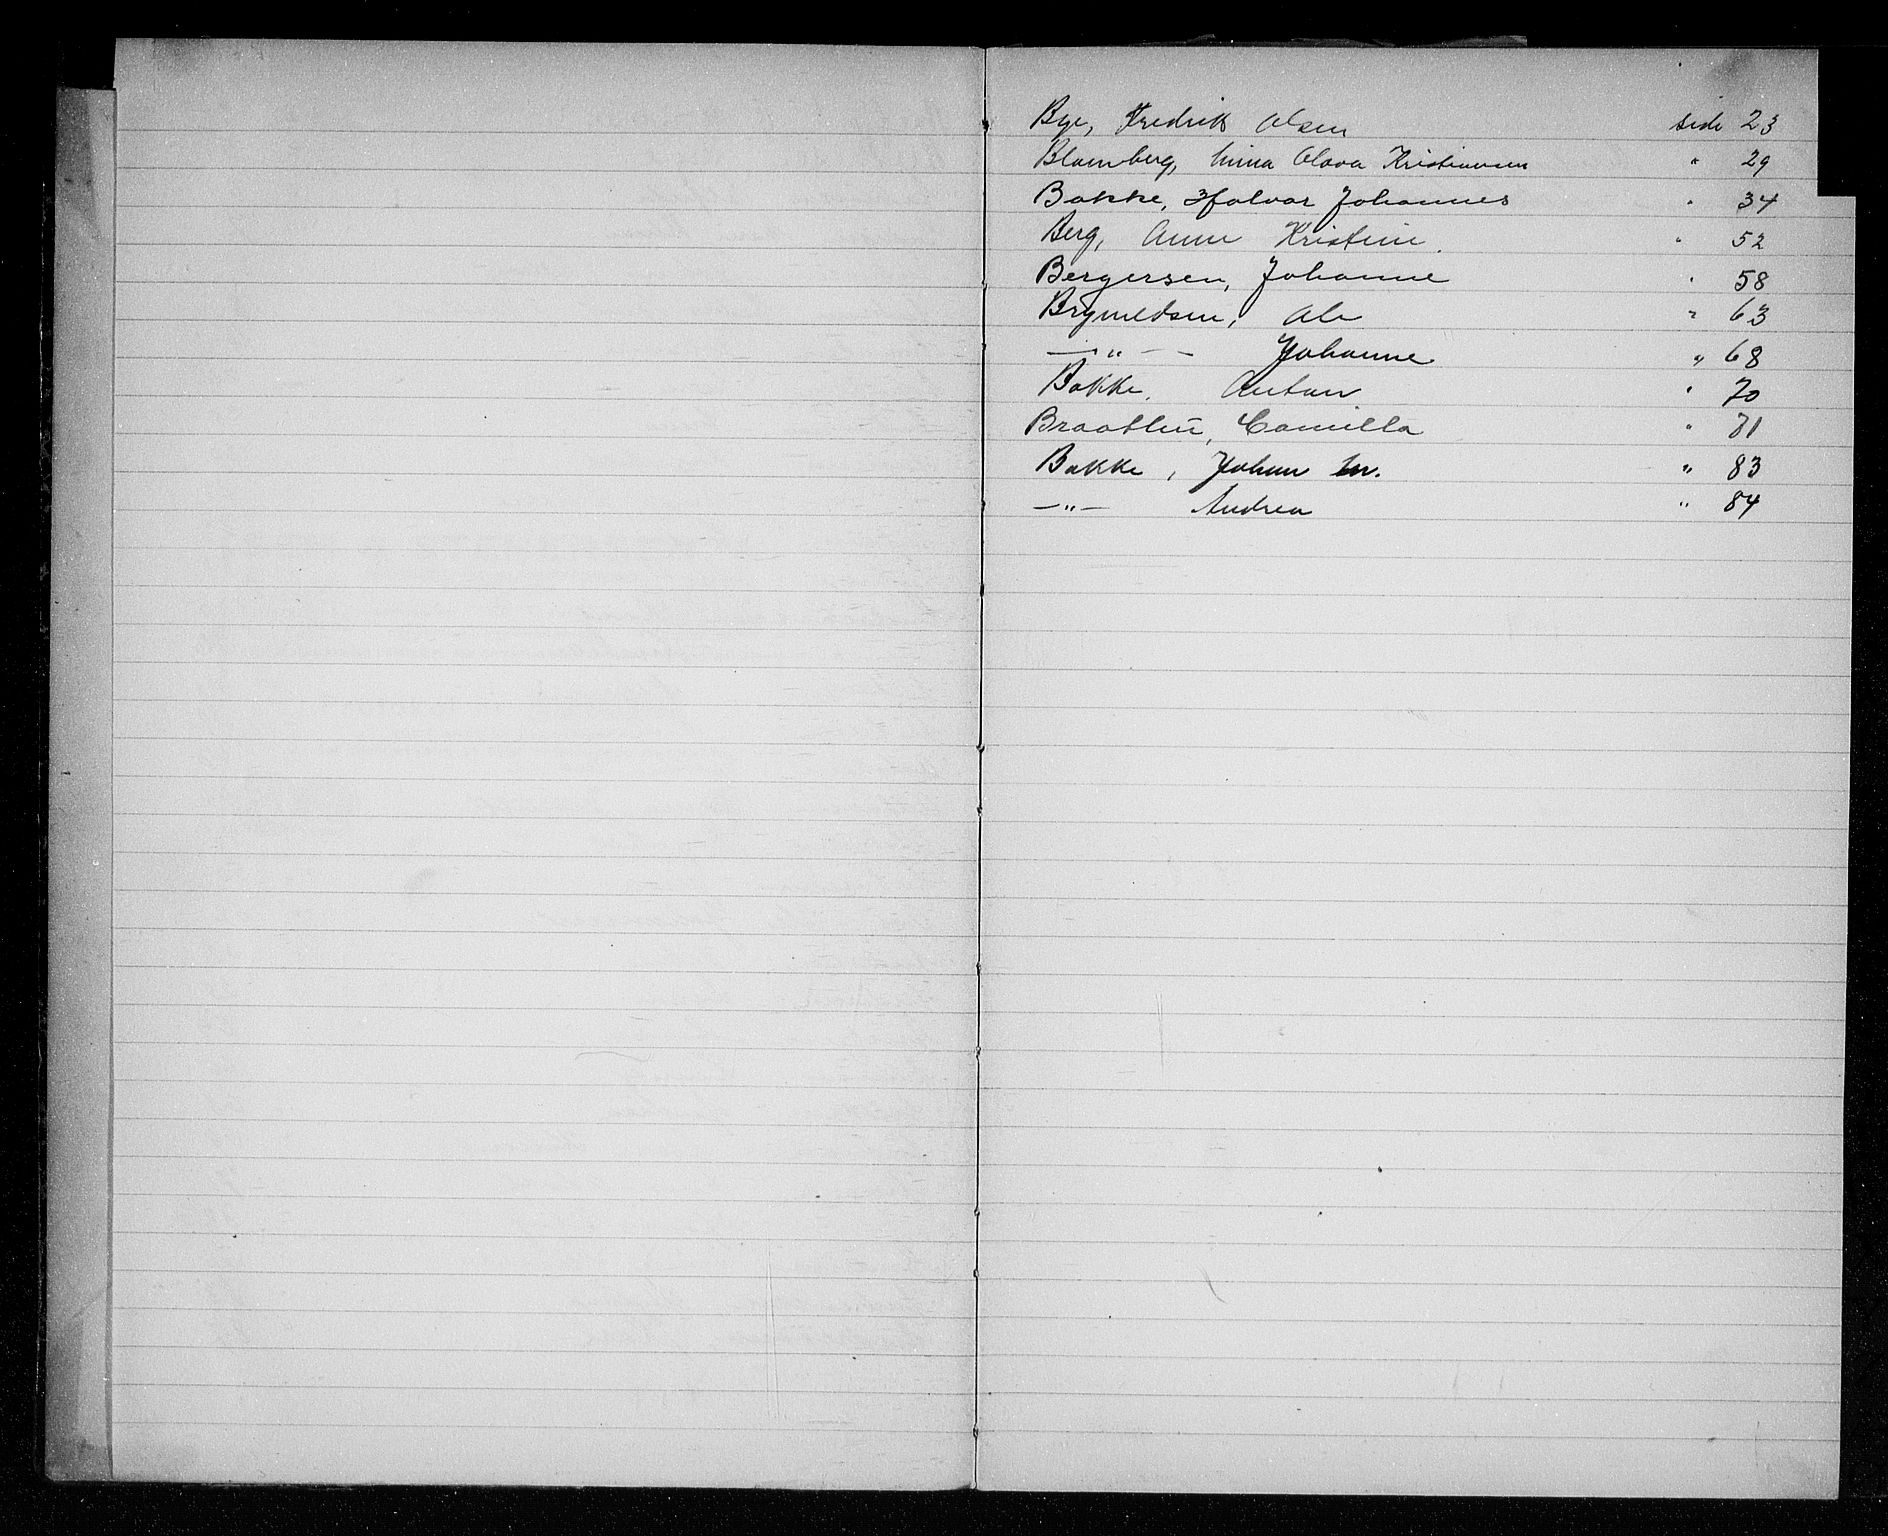 Bye, Fredrik Olsen side 23
Blomberg, Olava Kristiansen " 29
Bakke, Halvor Johannes " 34
Berg, Anne Kristine. " 52
Bergersen, Johanne " 58
Brynildsen, Ole " 63
—"— Johanne " 68
Bakke, Anton " 70
Braathen, Camilla " 81
Bakke, Johan M. " 83
—"— Andrea " 84